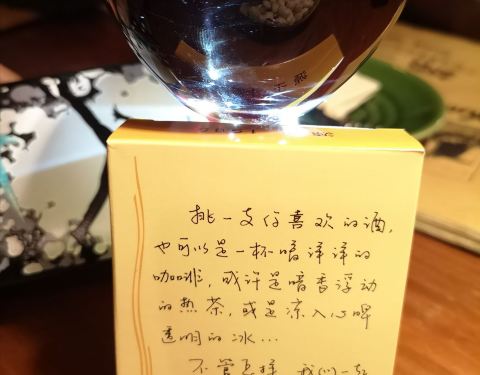 挑一支你喜欢的酒,
也可以是一杯暗洋洋的
咖啡,或许是暗香浮动
的热茶,或是凉入心脾
透明的冰...
不管怎样 我们一起